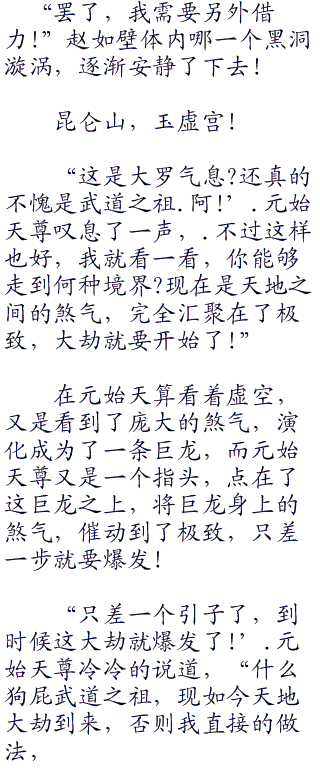 “罢了，我需要另外借
力!”赵如壁体内哪一个黑洞
漩涡，逐渐安静了下去！
昆仑山，玉虚宫！
“这是大罗气息?还真的
不愧是武道之祖.阿!’.元始
天尊叹息了一声，.不过这样
也好，我就看一看，你能够
走到何种境界?现在是天地之
间的煞气，完全汇聚在了极
致，大劫就要开始了!”
在元始天算看着虚空，
又是看到了庞大的煞气，演
化成为了一条巨龙，而元始
天尊又是一个指头，点在了
这巨龙之上，将巨龙身上的
煞气，催动到了极致，只差
一步就要爆发！
“只差一个引子了，到
时候这大劫就爆发了!’.元
始天尊冷冷的说道，“什么
狗屁武道之祖，现如今天地
大劫到来，否则我直接的做
法，